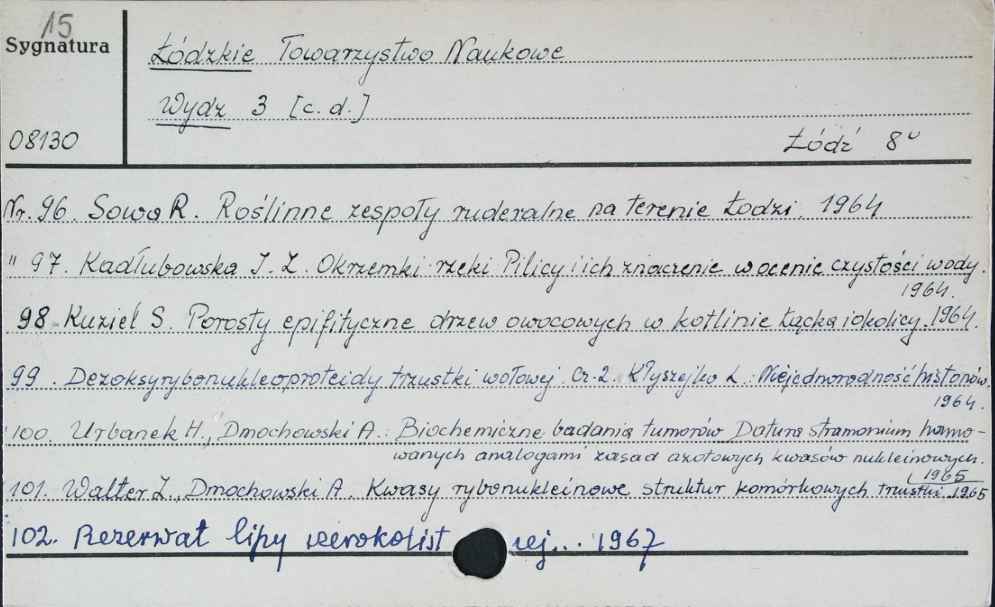 15
Sygnatura
Łódzkie Towarzystwo Naukowe
Wydz 3 [c. d.]
08130
Łódź 8°
Nr. 96. Sowa R. Roślinne zespoły ruderalne na terenie Łodzi. 1964
" 97. Kadłubowska J. Z. Okrzemki rzeki Pilicy i ich znaczenie w ocenie czystości wody.
1964.
98. Kuziel S. Porosty epifityczne drzew owocowych w kotlinie Łącka i okolicy. 1964.
99. Dezoksyrybonukleoproteidy trzustki wołowej. Cz. 2. Kłyszejko L. : Niejednorodność histonów.
1964.
100. Urbanek H., Dmochowski A. : Biochemiczne badania tumorów Datura stramonium hamo-
wanych analogami zasad azotowych kwasów nukleinowych.
1965
101. Walter Z., Dmochowski A. Kwasy rybonukleinowe struktur komórkowych trzustki. 1965
102. Rezerwat lipy szerokolist ej... 1967